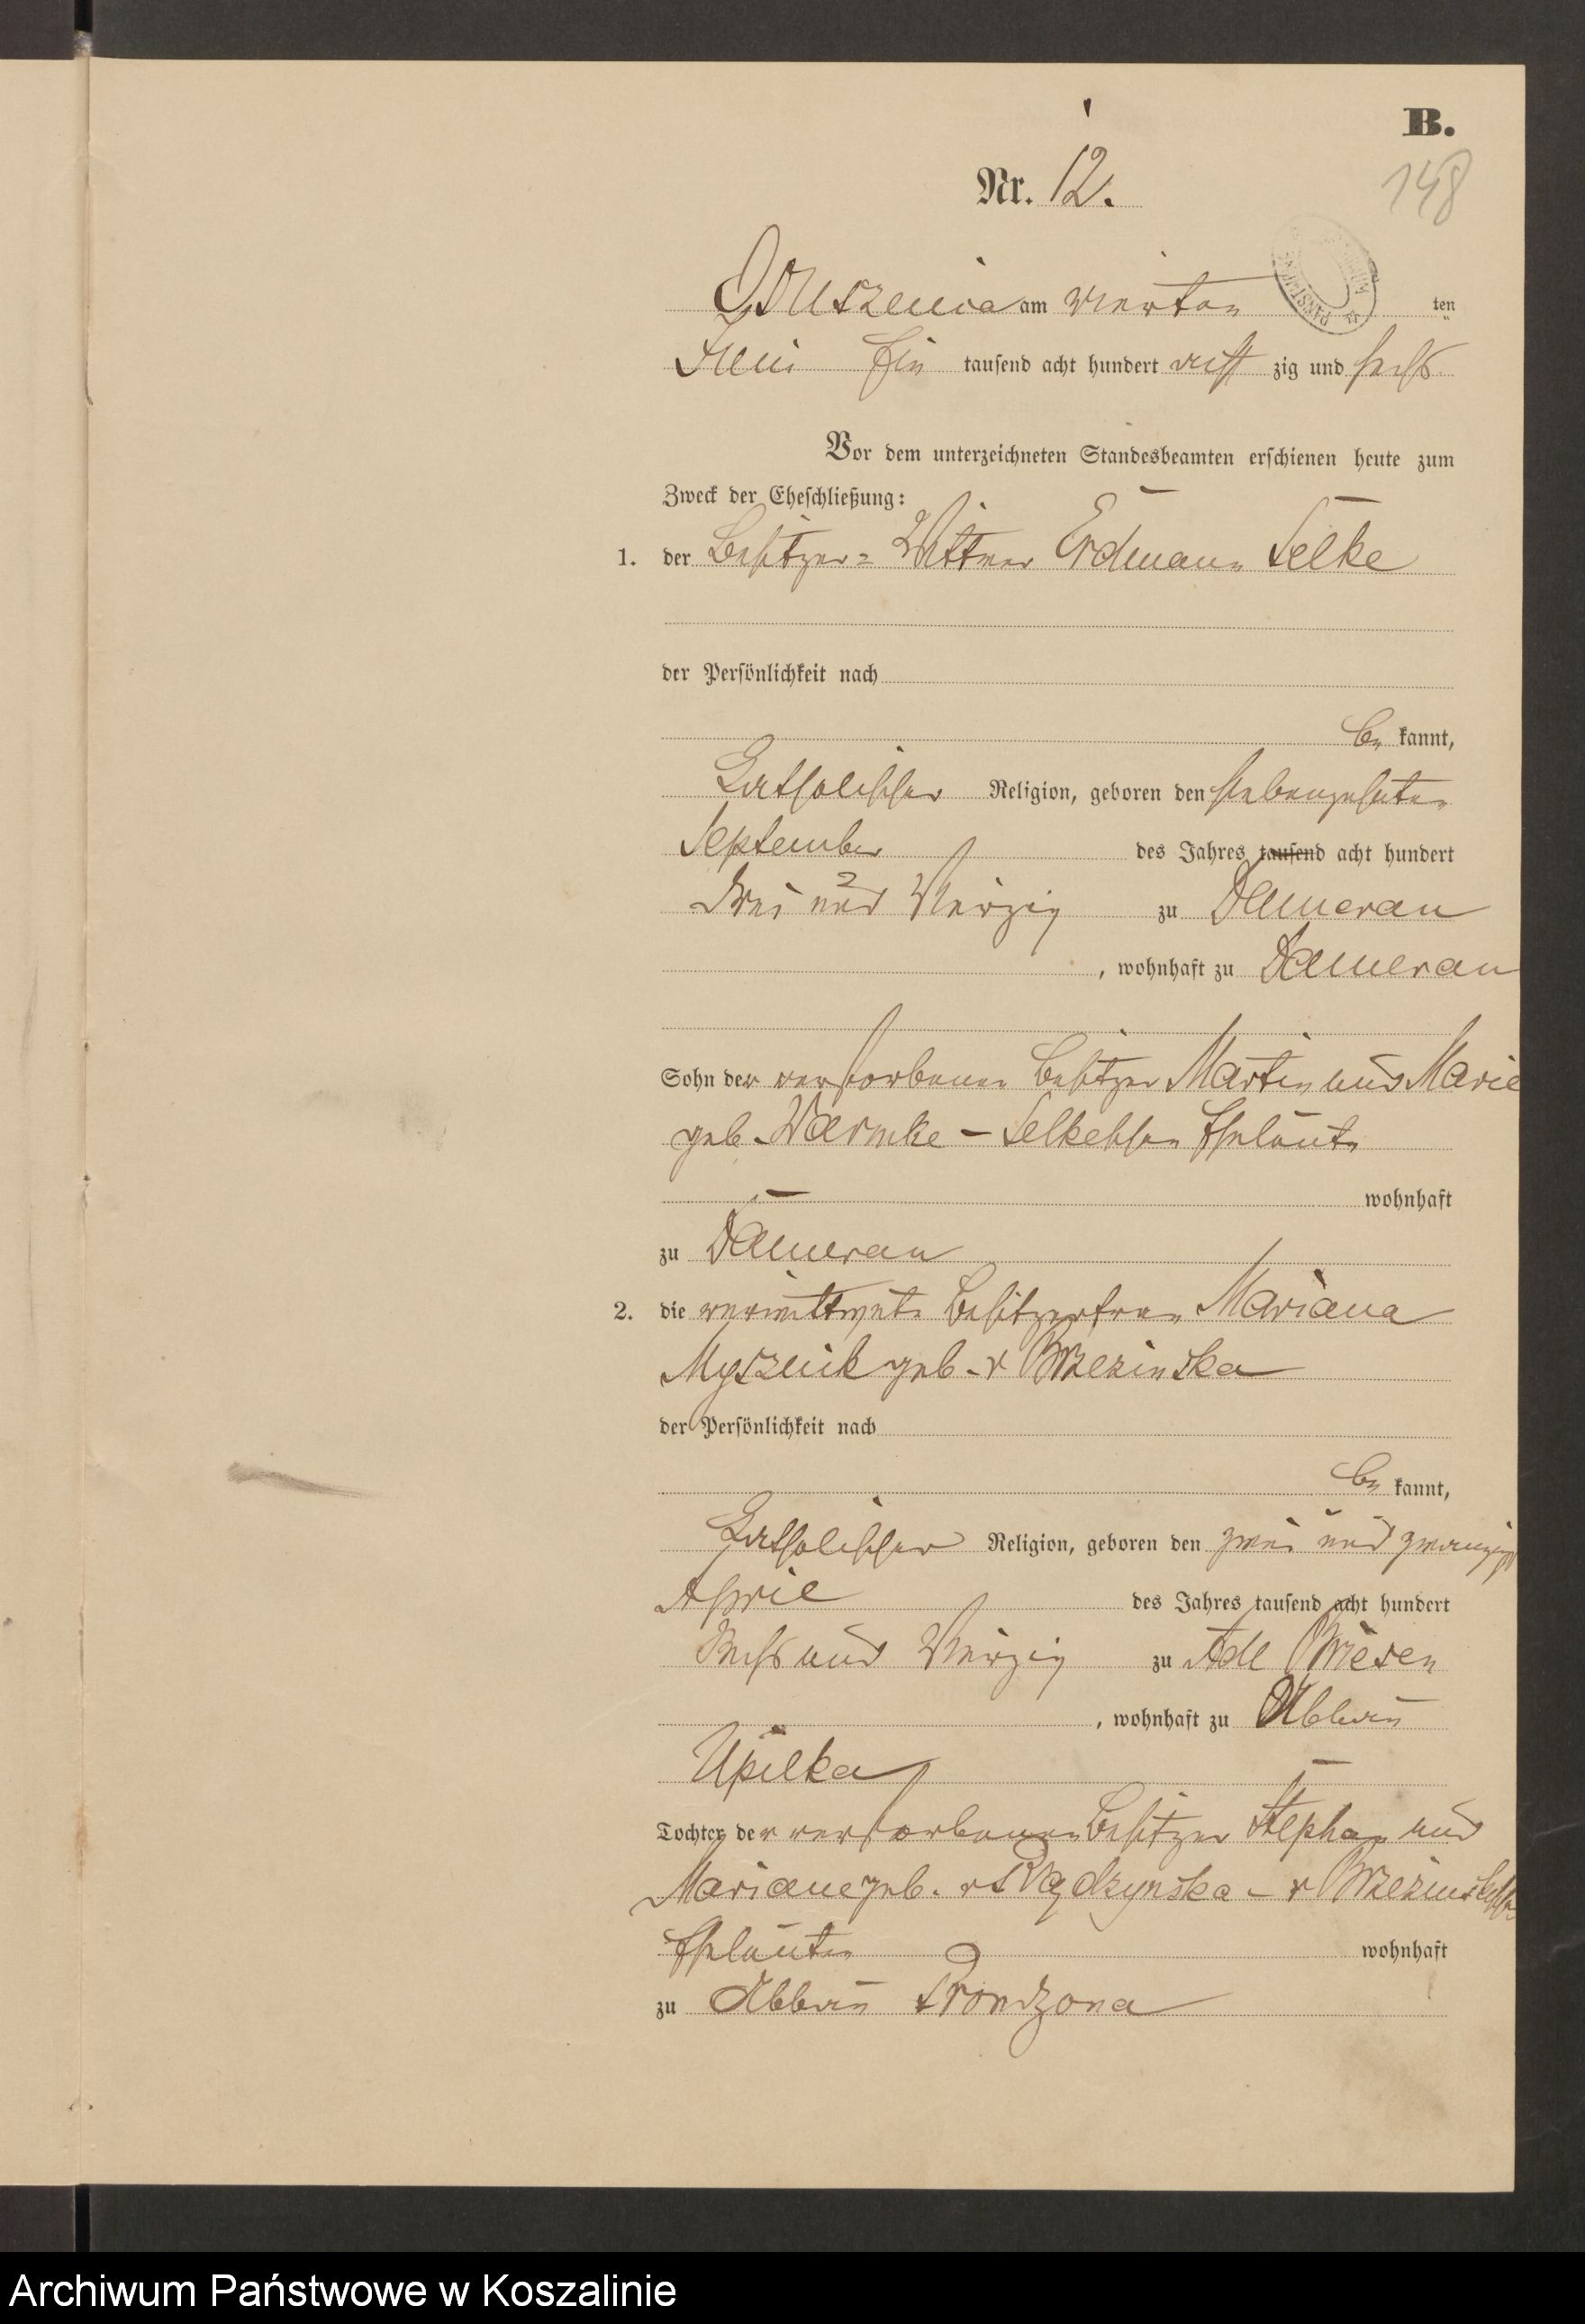 B.
148
Nr. 12.
am vierten ten
Juni Ein tausend acht hundert acht zig und sechs
Vor dem unterzeichneten Standesbeamten erschienen heute zum
Zweck der Eheschließung:
1. der Besitzer= Wittwer Erdmann Selke
der Persönlichkeit nach
be kannt,
Katholischer Religion, geboren den siebenzehnten
September des Jahres tausend acht hundert
drei und Vierzig zu Damerau
, wohnhaft zu Damerau
Sohn der verstorbenen Besitzer Martin und Marie
geb. Warmke – Selkeschen Eheleute
wohnhaft
zu Damerau
2. die verwittwete Besitzerfrau Mariana
geb. v Brzezinska
der Persönlichkeit nach
be kannt,
Katholischer Religion, geboren den zwei und zwanzigst
April des Jahres tausend acht hundert
Sechs und Vierzig zu Adl Briesen
, wohnhaft zu Abbau
Upilka
Tochter der verstorbenen Besitzer Stephan und
Mariane geb. – v Brzezinskischen
Eheleute wohnhaft
zu Abbau Prondzona
Archiwum Państwowe w Koszalinie